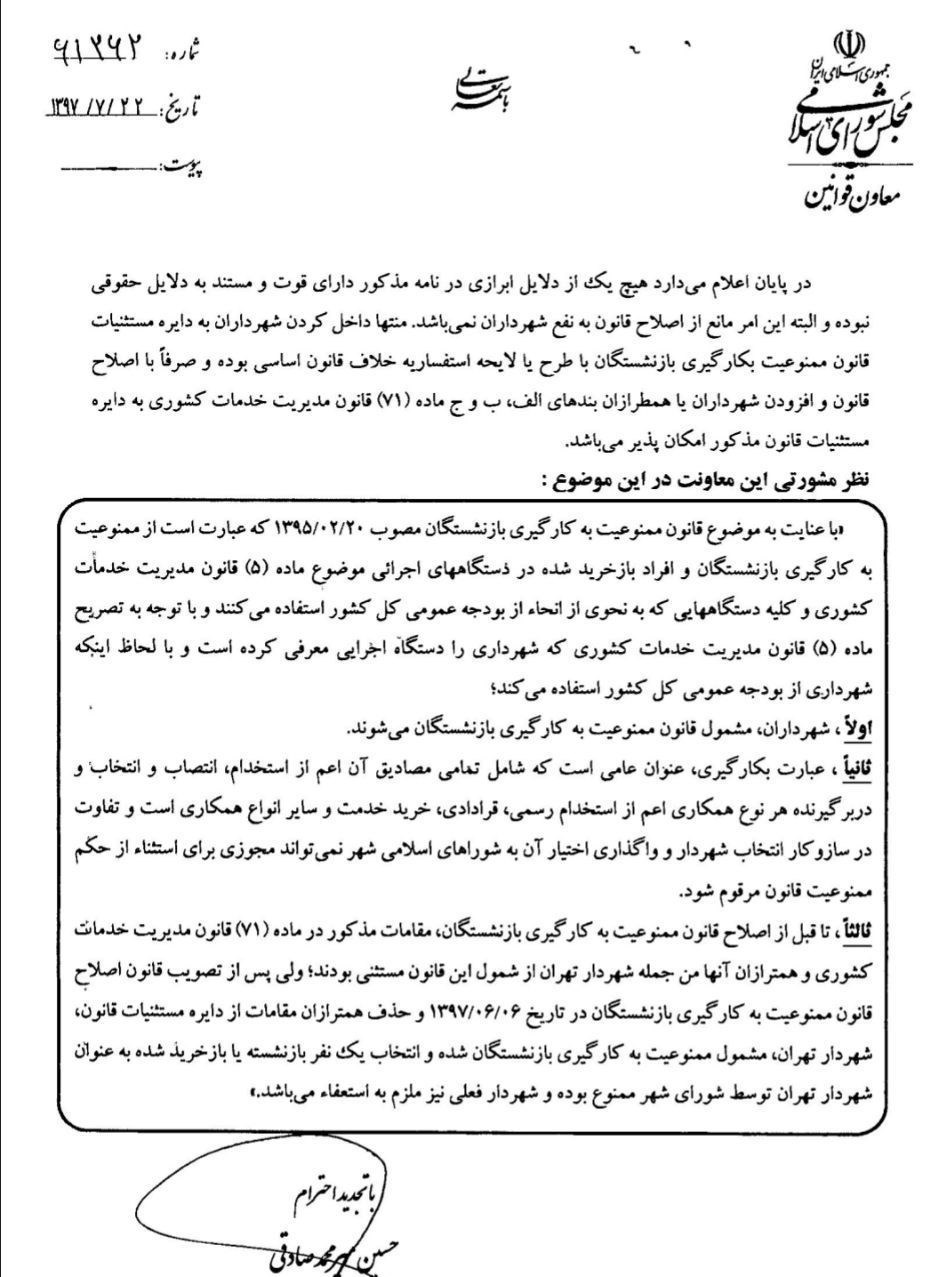 جمهوری اسلامی ایران
مجلس شورای اسلامی
معاون قوانین
باسمه تعالی
شماره: ۶۱۳۶۲
تاریخ: ۱۳۹۷/۷/۲۲
پیوست:
در پایان اعلام می‌دارد هیچ یک از دلایل ابرازی در نامه مذکور دارای قوت و مستند به دلایل حقوقی
نبوده و البته این امر مانع از اصلاح قانون به نفع شهرداران نمی‌باشد. منتها داخل کردن شهرداران به دایره مستثنیات
قانون ممنوعیت بکارگیری بازنشستگان با طرح یا لایحه استفساریه خلاف قانون اساسی بوده و صرفاً با اصلاح
قانون و افزودن شهرداران یا همطرازان بندهای الف، ب و ج ماده (۷۱) قانون مدیریت خدمات کشوری به دایره
مستثنیات قانون مذکور امکان پذیر می‌باشد.
نظر مشورتی این معاونت در این موضوع :
«با عنایت به موضوع قانون ممنوعیت به کارگیری بازنشستگان مصوب ۱۳۹۵/۰۲/۲۰ که عبارت است از ممنوعیت
به کارگیری بازنشستگان و افراد بازخرید شده در دستگاههای اجرائی موضوع ماده (۵) قانون مدیریت خدمات
کشوری و کلیه دستگاههایی که به نحوی از انحاء از بودجه عمومی کل کشور استفاده می‌کنند و با توجه به تصریح
ماده (۵) قانون مدیریت خدمات کشوری که شهرداری را دستگاه اجرایی معرفی کرده است و با لحاظ اینکه
شهرداری از بودجه عمومی کل کشور استفاده می‌کند؛
اولاً ، شهرداران، مشمول قانون ممنوعیت به کارگیری بازنشستگان می‌شوند.
ثانیاً ، عبارت بکارگیری، عنوان عامی است که شامل تمامی مصادیق آن اعم از استخدام، انتصاب و انتخاب و
دربرگیرنده هر نوع همکاری اعم از استخدام رسمی، قرادادی، خرید خدمت و سایر انواع همکاری است و تفاوت
در سازوکار انتخاب شهردار و واگذاری اختیار آن به شوراهای اسلامی شهر نمی‌تواند مجوزی برای استثناء از حکم
ممنوعیت قانون مرقوم شود.
ثالثاً ، تا قبل از اصلاح قانون ممنوعیت به کارگیری بازنشستگان، مقامات مذکور در ماده (۷۱) قانون مدیریت خدمات
کشوری و همترازان آنها من جمله شهردار تهران از شمول این قانون مستثنی بودند؛ ولی پس از تصویب قانون اصلاح
قانون ممنوعیت به کارگیری بازنشستگان در تاریخ ۱۳۹۷/۰۶/۰۶ و حذف همترازان مقامات از دایره مستثنیات قانون،
شهردار تهران، مشمول ممنوعیت به کارگیری بازنشستگان شده و انتخاب یک نفر بازنشسته یا بازخرید شده به عنوان
شهردار تهران توسط شورای شهر ممنوع بوده و شهردار فعلی نیز ملزم به استعفاء می‌باشد.»
با تجدید احترام
حسین میرمحمد صادقی